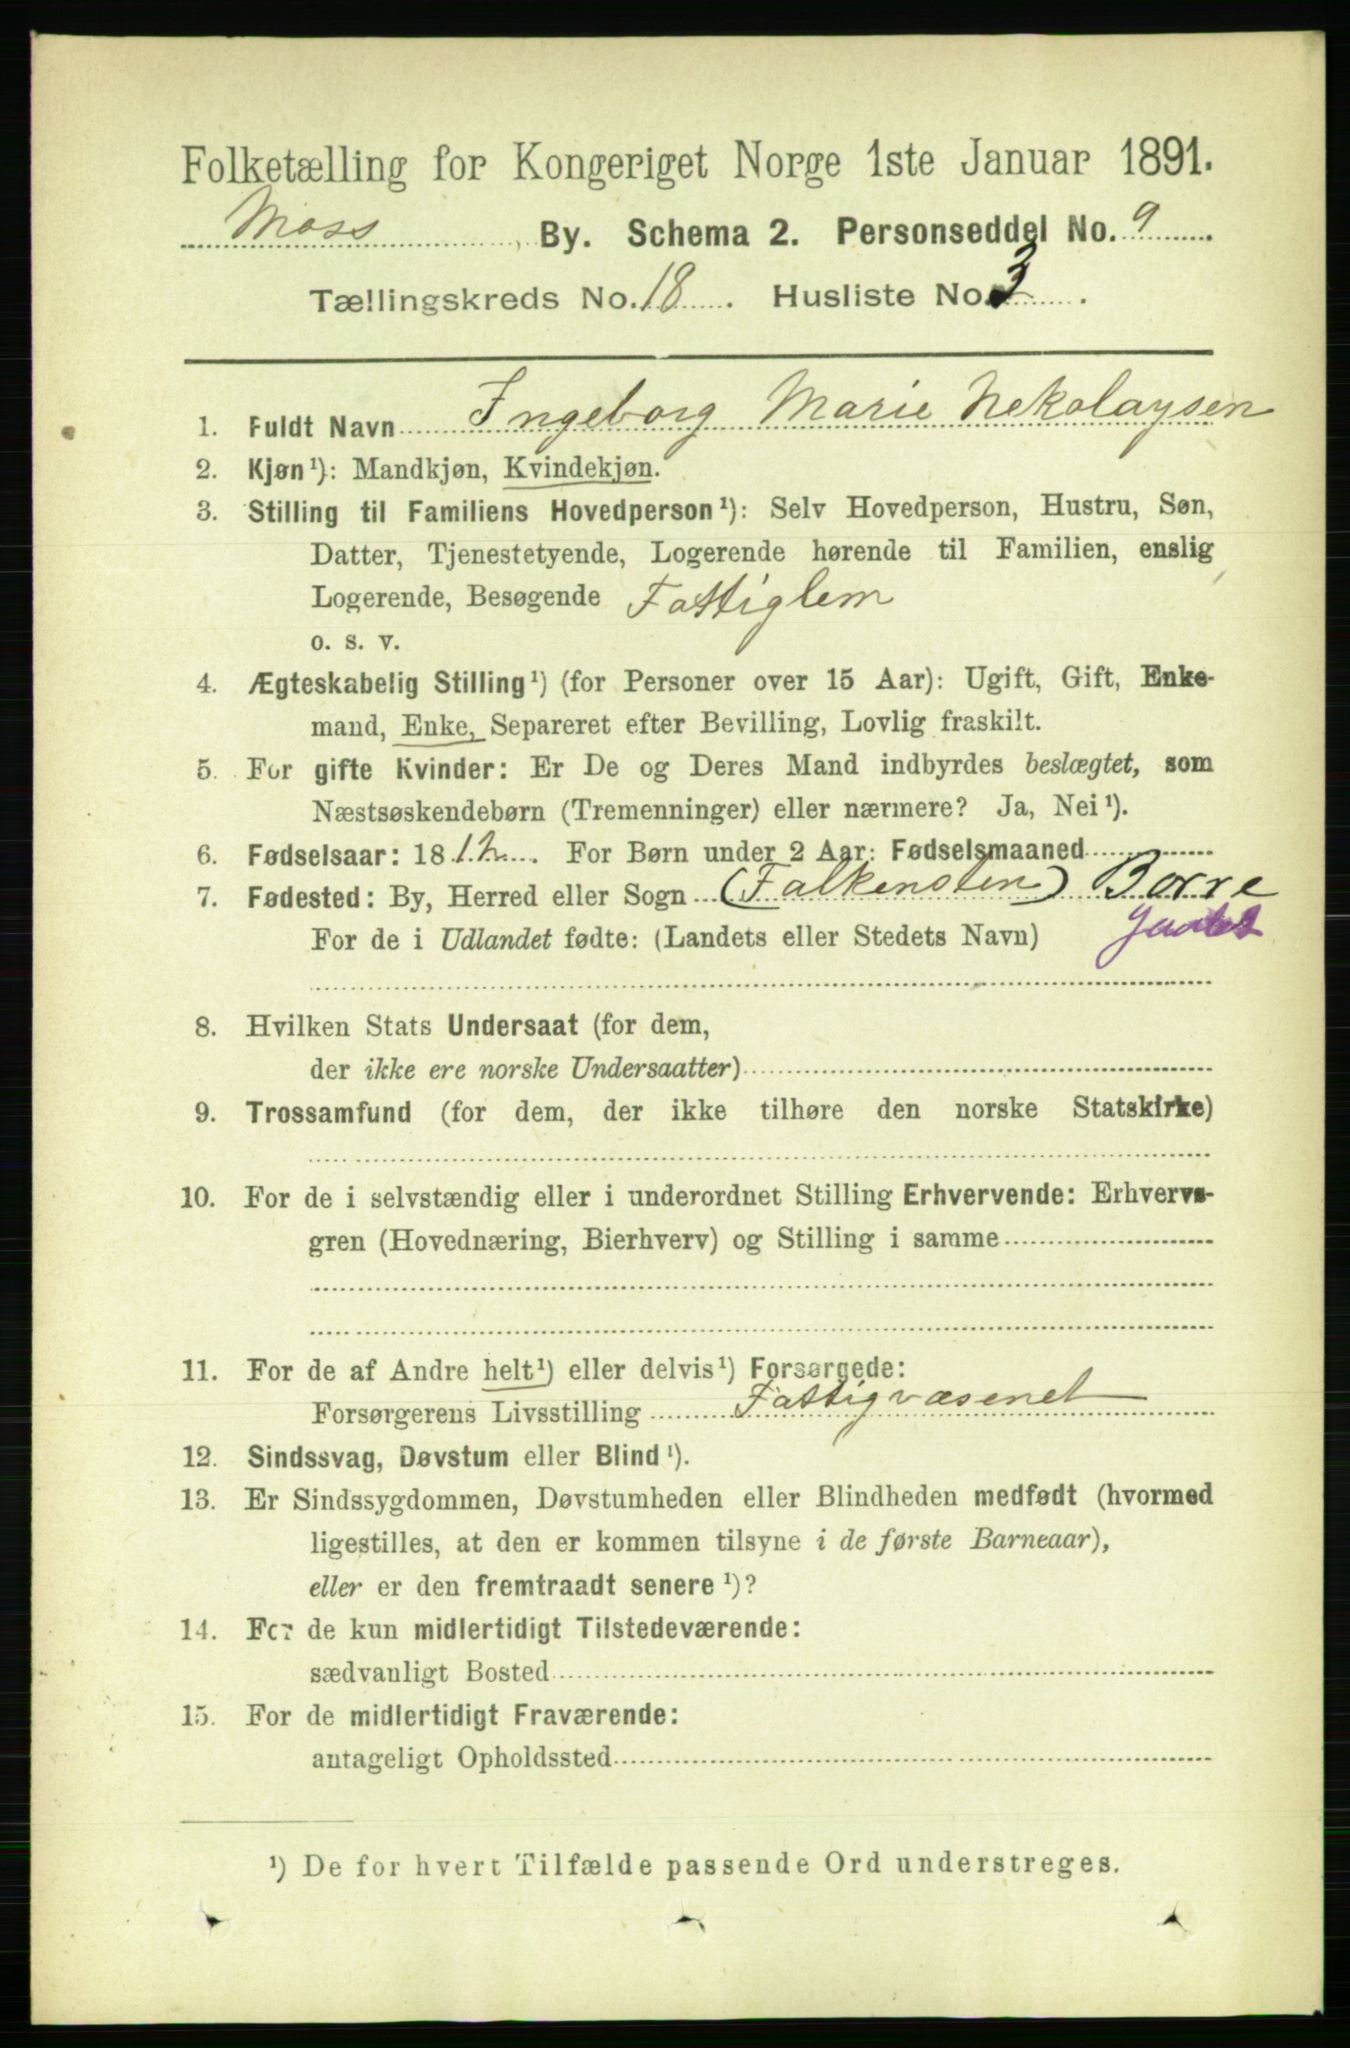 Folketælling for Kongeriget Norge 1ste Januar 1891.
Moss, By. Schema 2. Personseddel No. 9.
Tællingskreds No. 18. Husliste No. 3.
1. Fuldt Navn Ingeborg Marie Nekolaysen
2. Kjøn¹): Mandkjøn, Kvindekjøn.
3. Stilling til Familiens Hovedperson¹): Selv Hovedperson, Hustru, Søn,
Datter, Tjenestetyende, Logerende hørende til Familien, enslig
Logerende, Besøgende Fattiglem
o. s. v.
4. Ægteskabelig Stilling¹) (for Personer over 15 Aar): Ugift, Gift, Enke-
mand, Enke, Separeret efter Bevilling, Lovlig fraskilt.
5. For gifte Kvinder: Er De og Deres Mand indbyrdes beslægtet, som
Næstsøskendebørn (Tremenninger) eller nærmere? Ja, Nei¹).
6. Fødselsaar: 1812. For Børn under 2 Aar: Fødselsmaaned
7. Fødested: By, Herred eller Sogn (Falkensten) Borre
For de i Udlandet fødte: (Landets eller Stedets Navn)
8. Hvilken Stats Undersaat (for dem,
der ikke ere norske Undersaatter)
9. Trossamfund (for dem, der ikke tilhøre den norske Statskirke)
10. For de i selvstændig eller i underordnet Stilling Erhvervende: Erhvervs-
gren (Hovednæring, Bierhverv) og Stilling i samme
11. For de af Andre helt¹) eller delvis¹) Forsørgede:
Forsørgerens Livsstilling Fattigvæsenet
12. Sindssvag, Døvstum eller Blind¹).
13. Er Sindssygdommen, Døvstumheden eller Blindheden medfødt (hvormed
ligestilles, at den er kommen tilsyne i de første Barneaar),
eller er den fremtraadt senere¹)?
14. For de kun midlertidigt Tilstedeværende:
sædvanligt Bosted
15. For de midlertidigt Fraværende:
antageligt Opholdssted
¹) De for hvert Tilfælde passende Ord understreges.